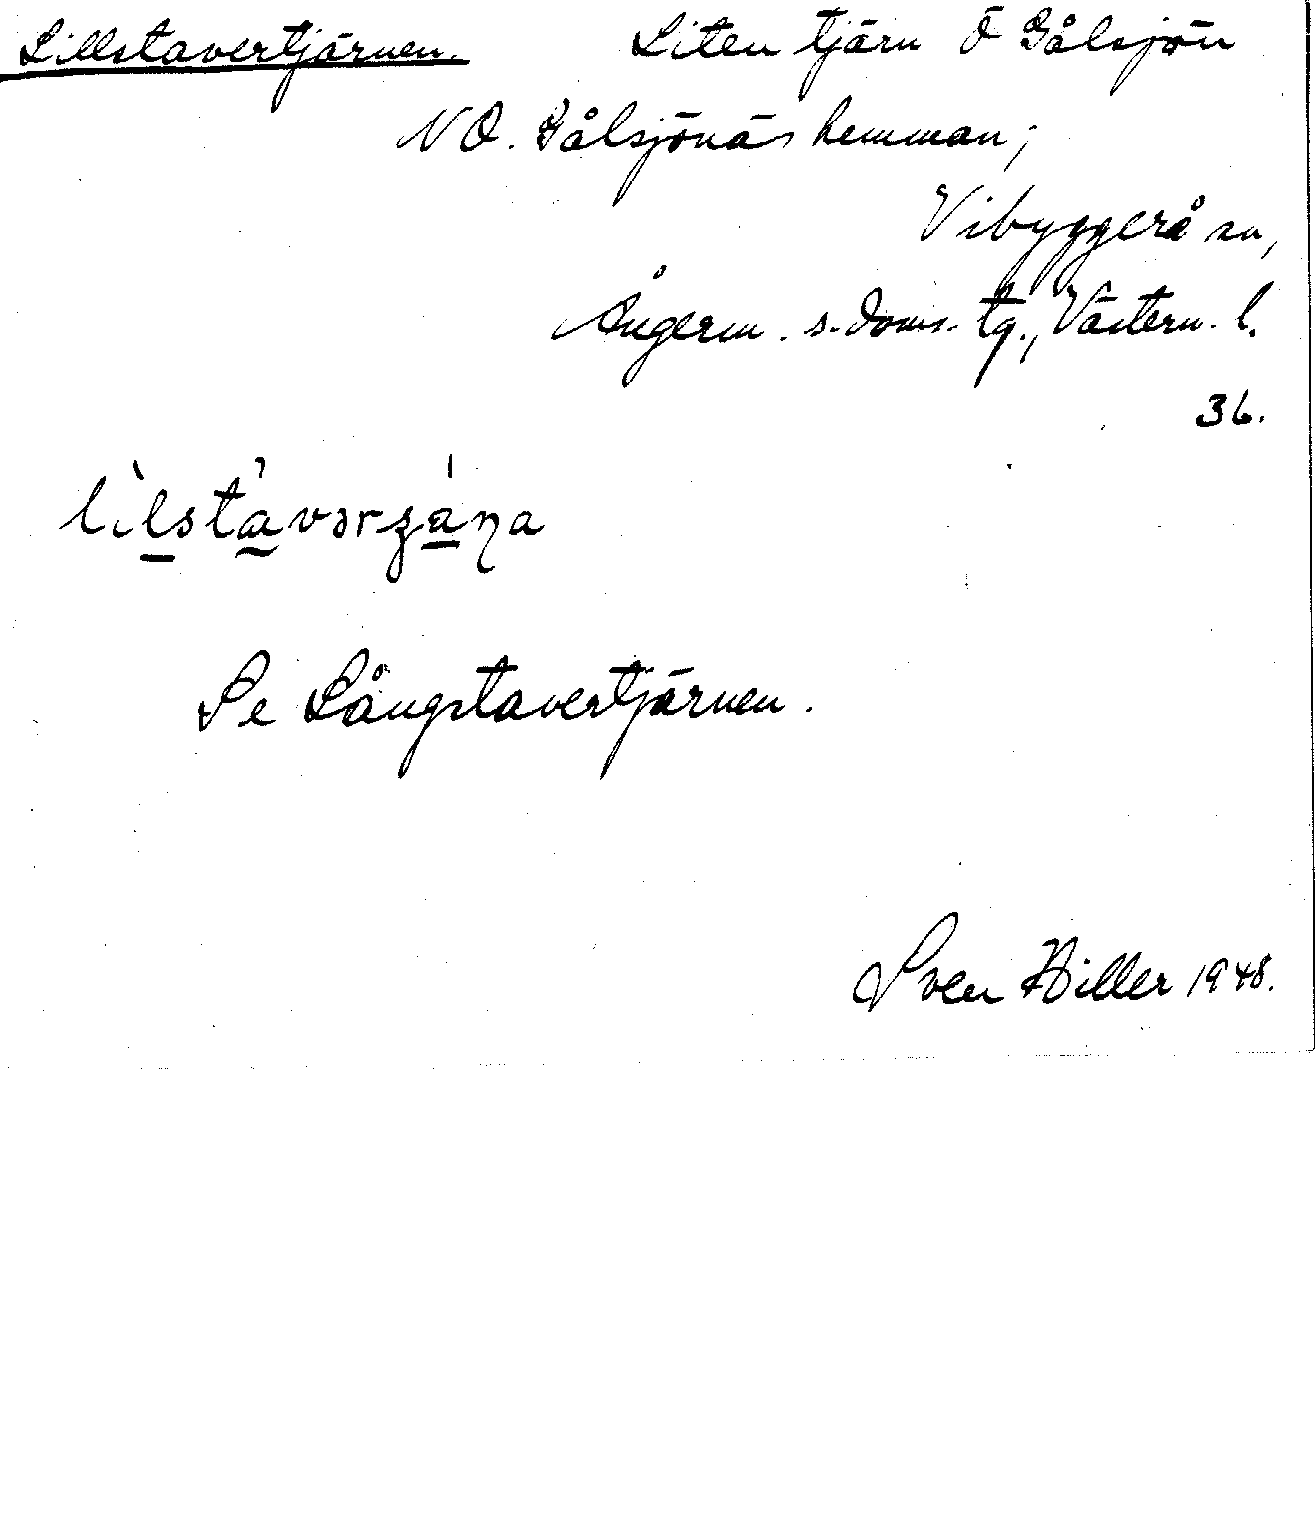 Lillstavertjärnen. Liten tjärn Ö Gålsjön
NO. Gålsjönäs hemman;
Vibyggerå sn,
Ångerm. s. doms. tg., Västern. l.
36.
Se Långstavertjärnen.
Sven Hiller 1948.